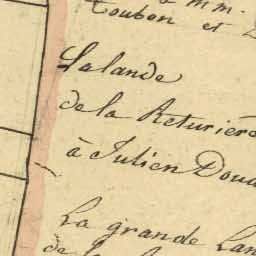 à mm.
Toubon et
La lande
de la Returière
à Julien Doua
La grande Lan
de la